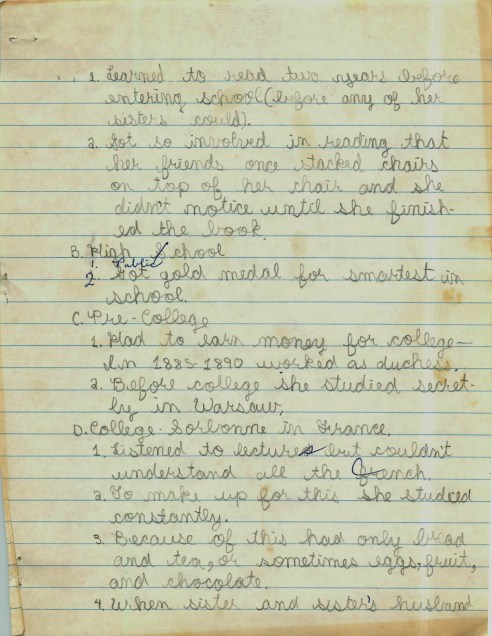 1. Learned to read two years before
entering school (before any of her
sisters could).
2. Got so involved in reading that
her friends once stacked chairs
on top of her chair and she
didn't notice until she finish-
ed the book.
B. High School
1. Public
2. Got gold medal for smartest in
school.
C. Pre-College
1. Had to earn money for college—
In 1885-1890 worked as duchess.
2. Before college she studied secret-
ly in Warsaw.
D. College - Sorbonne in France.
1. Listened to lectures but couldn't
understand all the French.
2. To make up for this she studied
constantly.
3. Because of this had only bread
and tea, or sometimes eggs, fruit,
and chocolate.
4. When sister and sister's husband